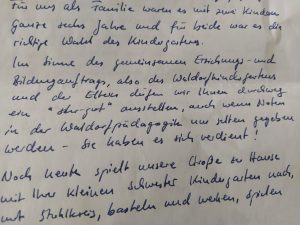 Für uns als Familie waren es mit zwei Kindern
ganze sechs Jahre und für beide war es die
richtige Wahl des Kindergartens.
Im Sinne des gemeinsamen Erziehung- und
Bildungsauftrags, also des Waldorfkindergartens
und der Eltern dürfen wir Ihnen durchweg
ein "sehr gut" ausstellen, auch wenn Noten
in der Waldorfpädagogik nur selten gegeben
werden - Sie haben es sich verdient!
Noch heute spielt unsere Große zu Hause
mit Ihrer kleinen Schwester Kindergarten nach,
mit Stuhlkreis, basteln und weben, spielen